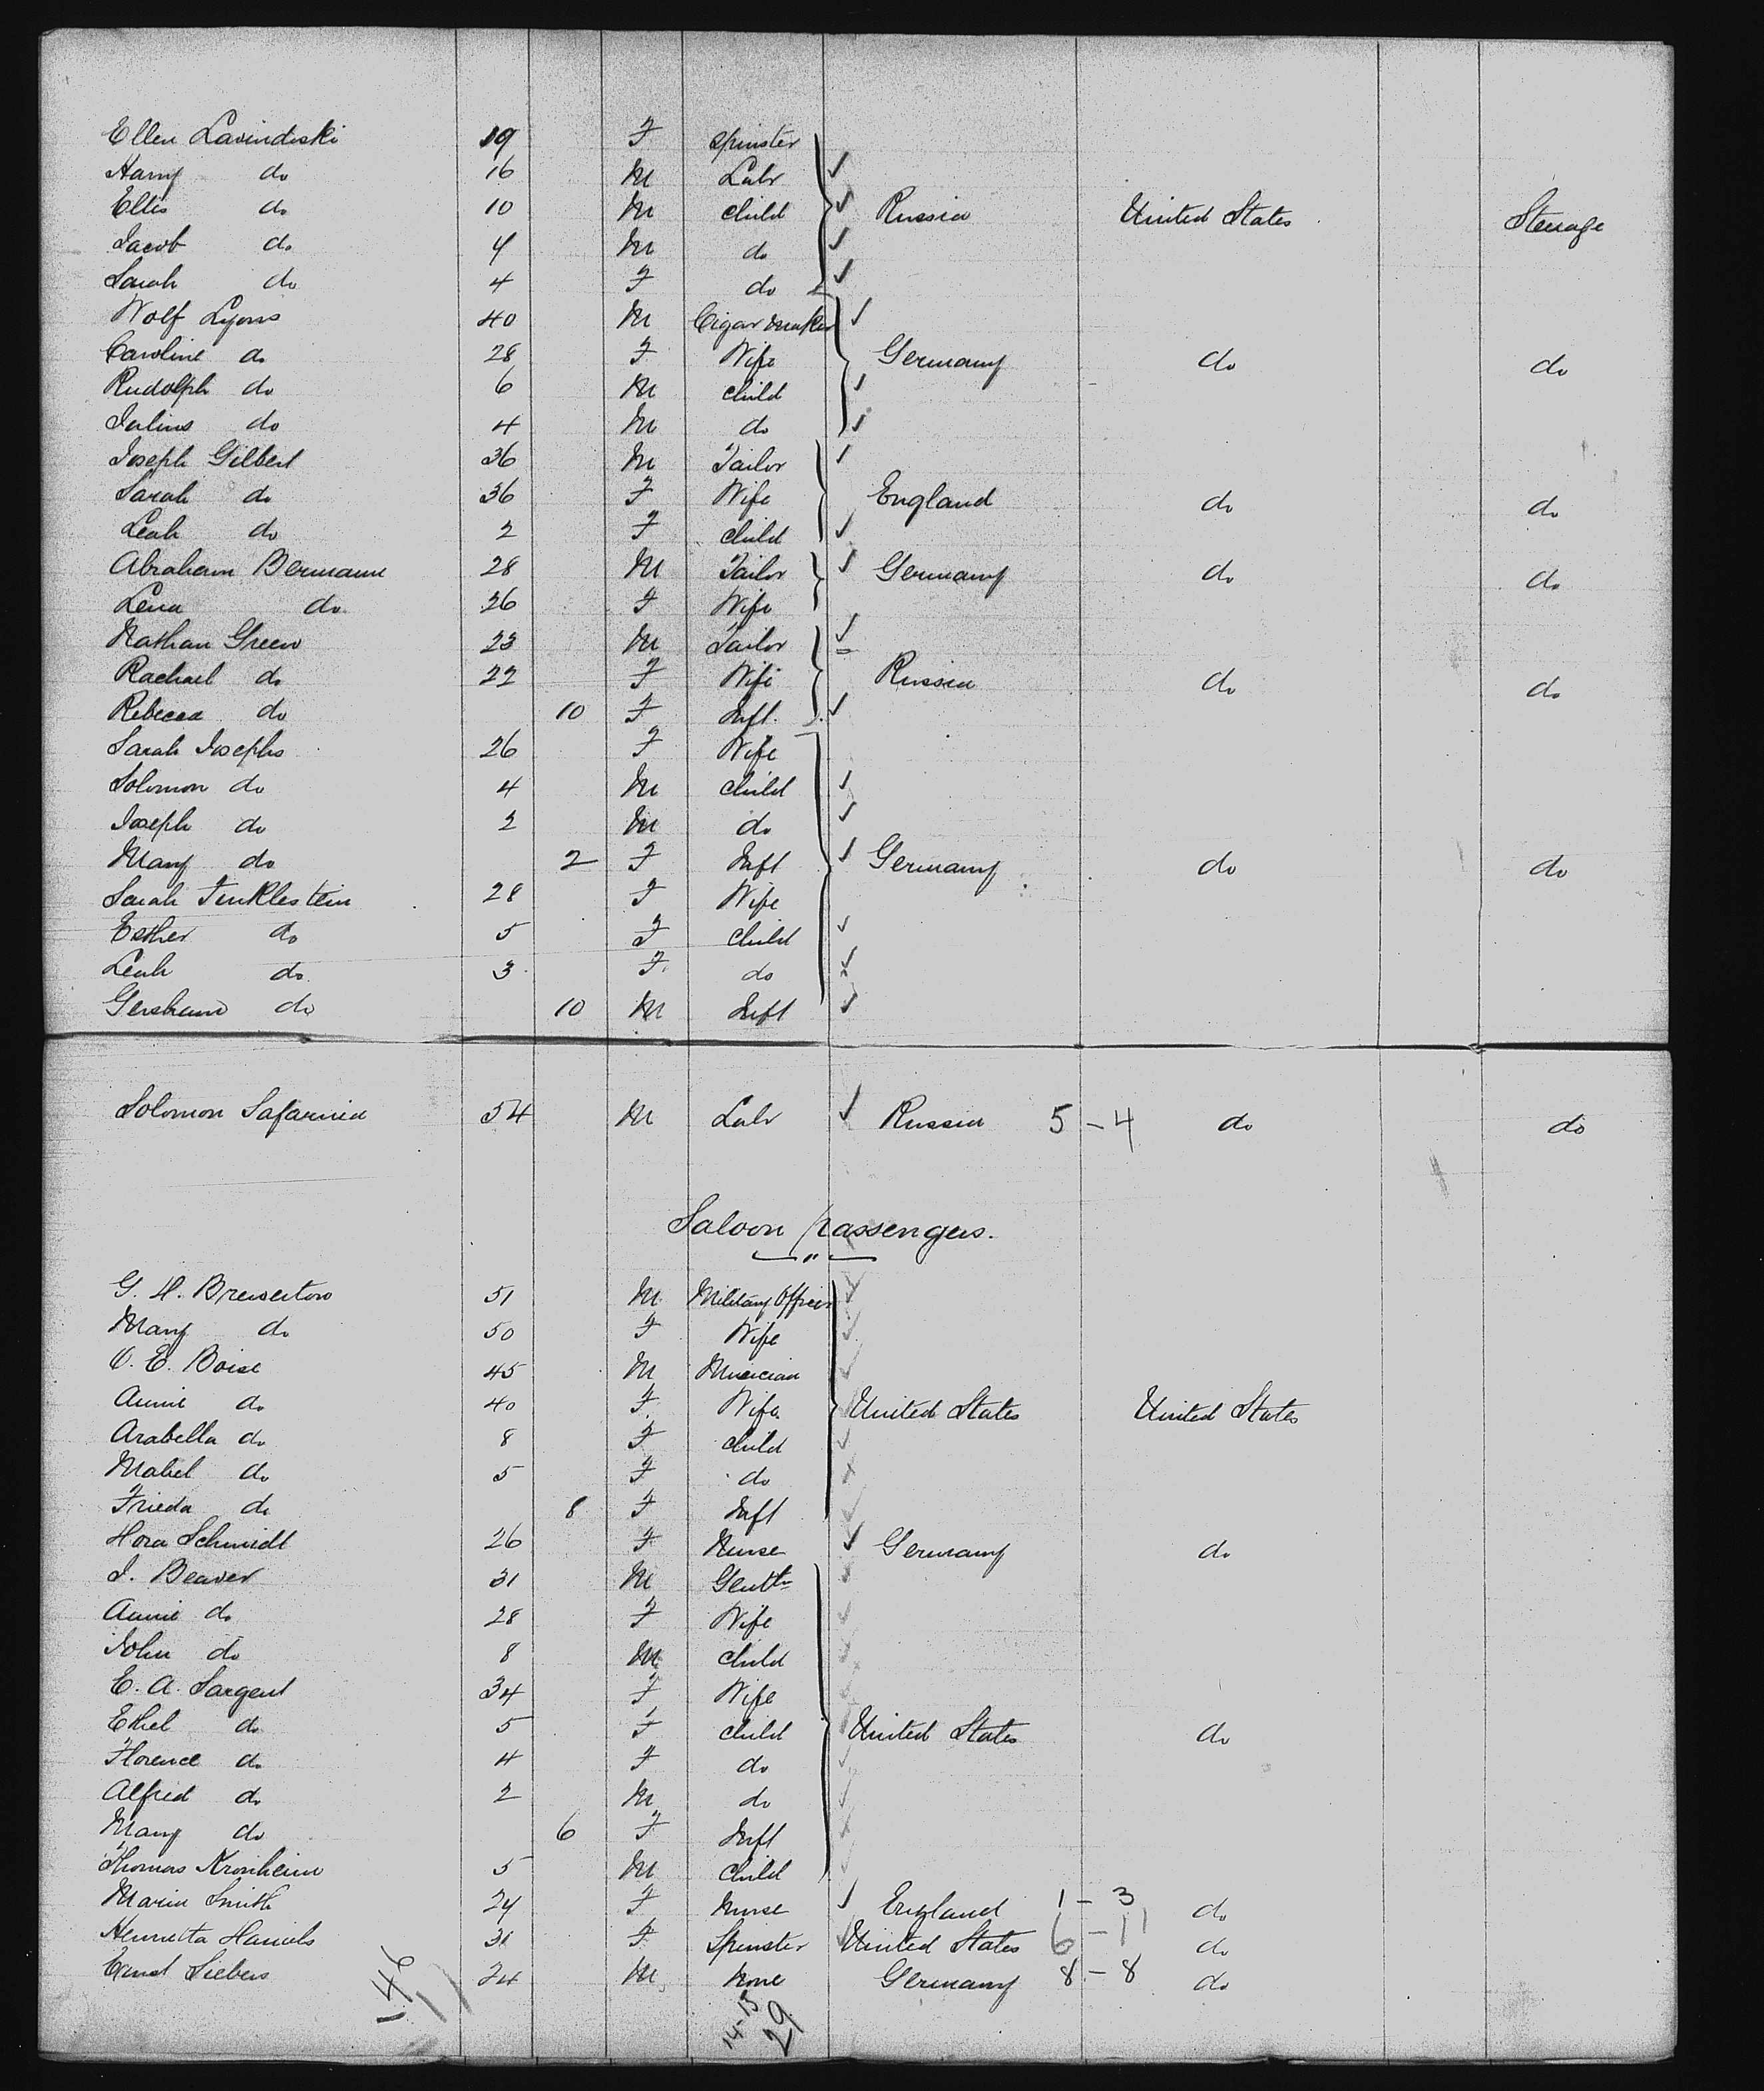 Ellen Lavindoski 19 F Spinster
Harry do 16 M Labr
Ellis do 10 M child Russia United States Steerage
Jacob do 7 M do
Sarah do 4 F do
Wolf Lyons 40 M Cigar Maker
Caroline do 28 F Wife Germany do do
Rudolph do 6 M child
Julius do 4 M do
Joseph Gilbert 36 M Tailor
Sarah do 36 F Wife England do do
Leah do 2 F child
Abraham Bermann 28 M Tailor Germany do do
Lena do 26 F Wife
Nathan Green 23 M Tailor
Rachael do 22 F Wife Russia do do
Rebecca do 10 F Inft.
Sarah Josephs 26 F Wife
Solomon do 4 M child
Joseph do 2 M do
Mary do 2 F Inft Germany do do
Sarah Finklestein 28 F Wife
Esther do 5 F child
Leah do 3 F. do
Gersheim do 10 M Inft
Solomon Safarnia 54 M Labr Russia 5-4 do do
Saloon passengers.
G. H. Brewerton 51 M Military Officer
Mary do 50 F Wife
O. E. Boise 45 M Musician
Annie do 40 F. Wife United States United States
Arabella do 8 F child
Mabel do 5 F do
Frieda do 8 F Inft
Flora Schmidt 26 F Nurse Germany do
J. Beaver 31 M Gentln
Annie do 28 F Wife
John do 8 M child
E. A. Sargent 34 F Wife
Ethel do 5 F child United States do
Florence do 4 F do
Alfred do 2 M do
Mary do 6 F Inft
Thomas Kronheim 5 M child
Maria Smith 24 F Nurse England 1-3 do
Henrietta Daniels 31 F Spinster United States 6-11 do
Ernst Siebers 24 M None Germany 8-8 do
46
14-15
29